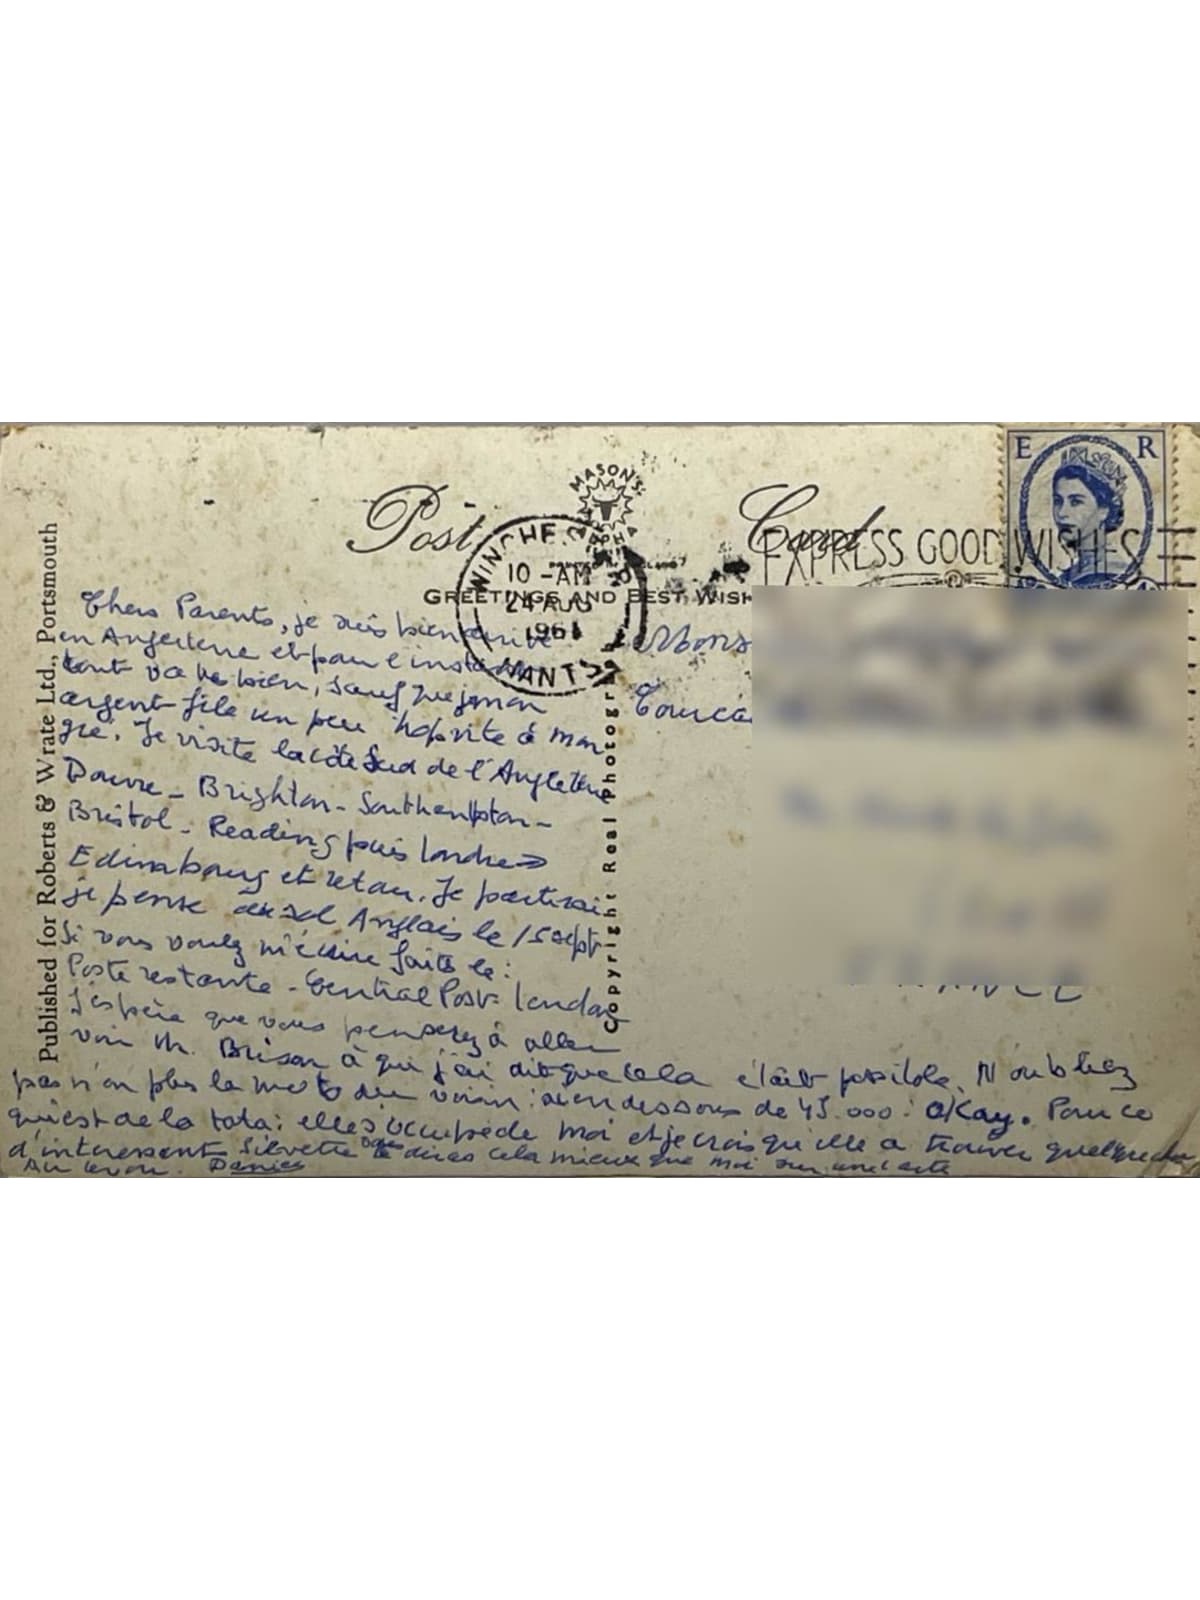 Published for Roberts & Wrate Ltd., Portsmouth
Post Card
MASON'S
ALPHA
E R
WINCHES
10 - AM
24 AUG
1961
HANTS
EXPRESS GOOD WISHES
GREETINGS AND BEST WISH
Copyright Real Photograph
Chers Parents, je suis bien arrivé
en Angleterre et pour l'instant
tout va bien, sauf que mon
argent file un peu trop vite à mon
gré. Je visite la côte Sud de l'Angleterre
Douvre - Brighton - Southampton -
Bristol - Reading puis Londres
Edimbourg et retour. Je partirai
je pense du sol Anglais le 15 sept
Si vous voulez m'écrire faites le :
Poste restante - Central Post London
J'espère que vous penserez à aller
voir M. Brison à qui j'ai dit que cela était possible. N'oubliez
pas non plus la moto du voisin : en dessous de 45.000 : OKay. Pour ce
qui est de la tata : elle s'occupe de moi et je crois qu'elle a trouver quelque chose
d'interessent Silvette dira cela mieux que moi sur une carte
Au revoir.
Mons
Tourca